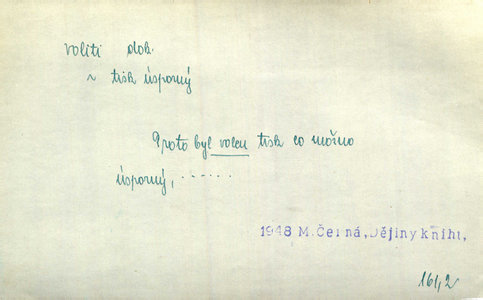 voliti dok.
~ tisk úsporný
Proto byl volen tisk co možno
úsporný, ······
1948 M. Černá, Dějiny kniht,
161,2